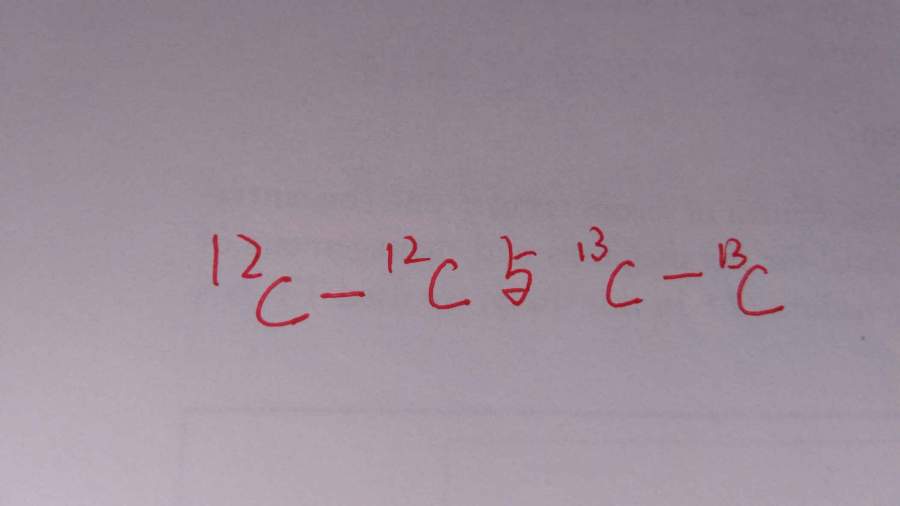 ¹²C – ¹²C 与 ¹³C – ¹³C